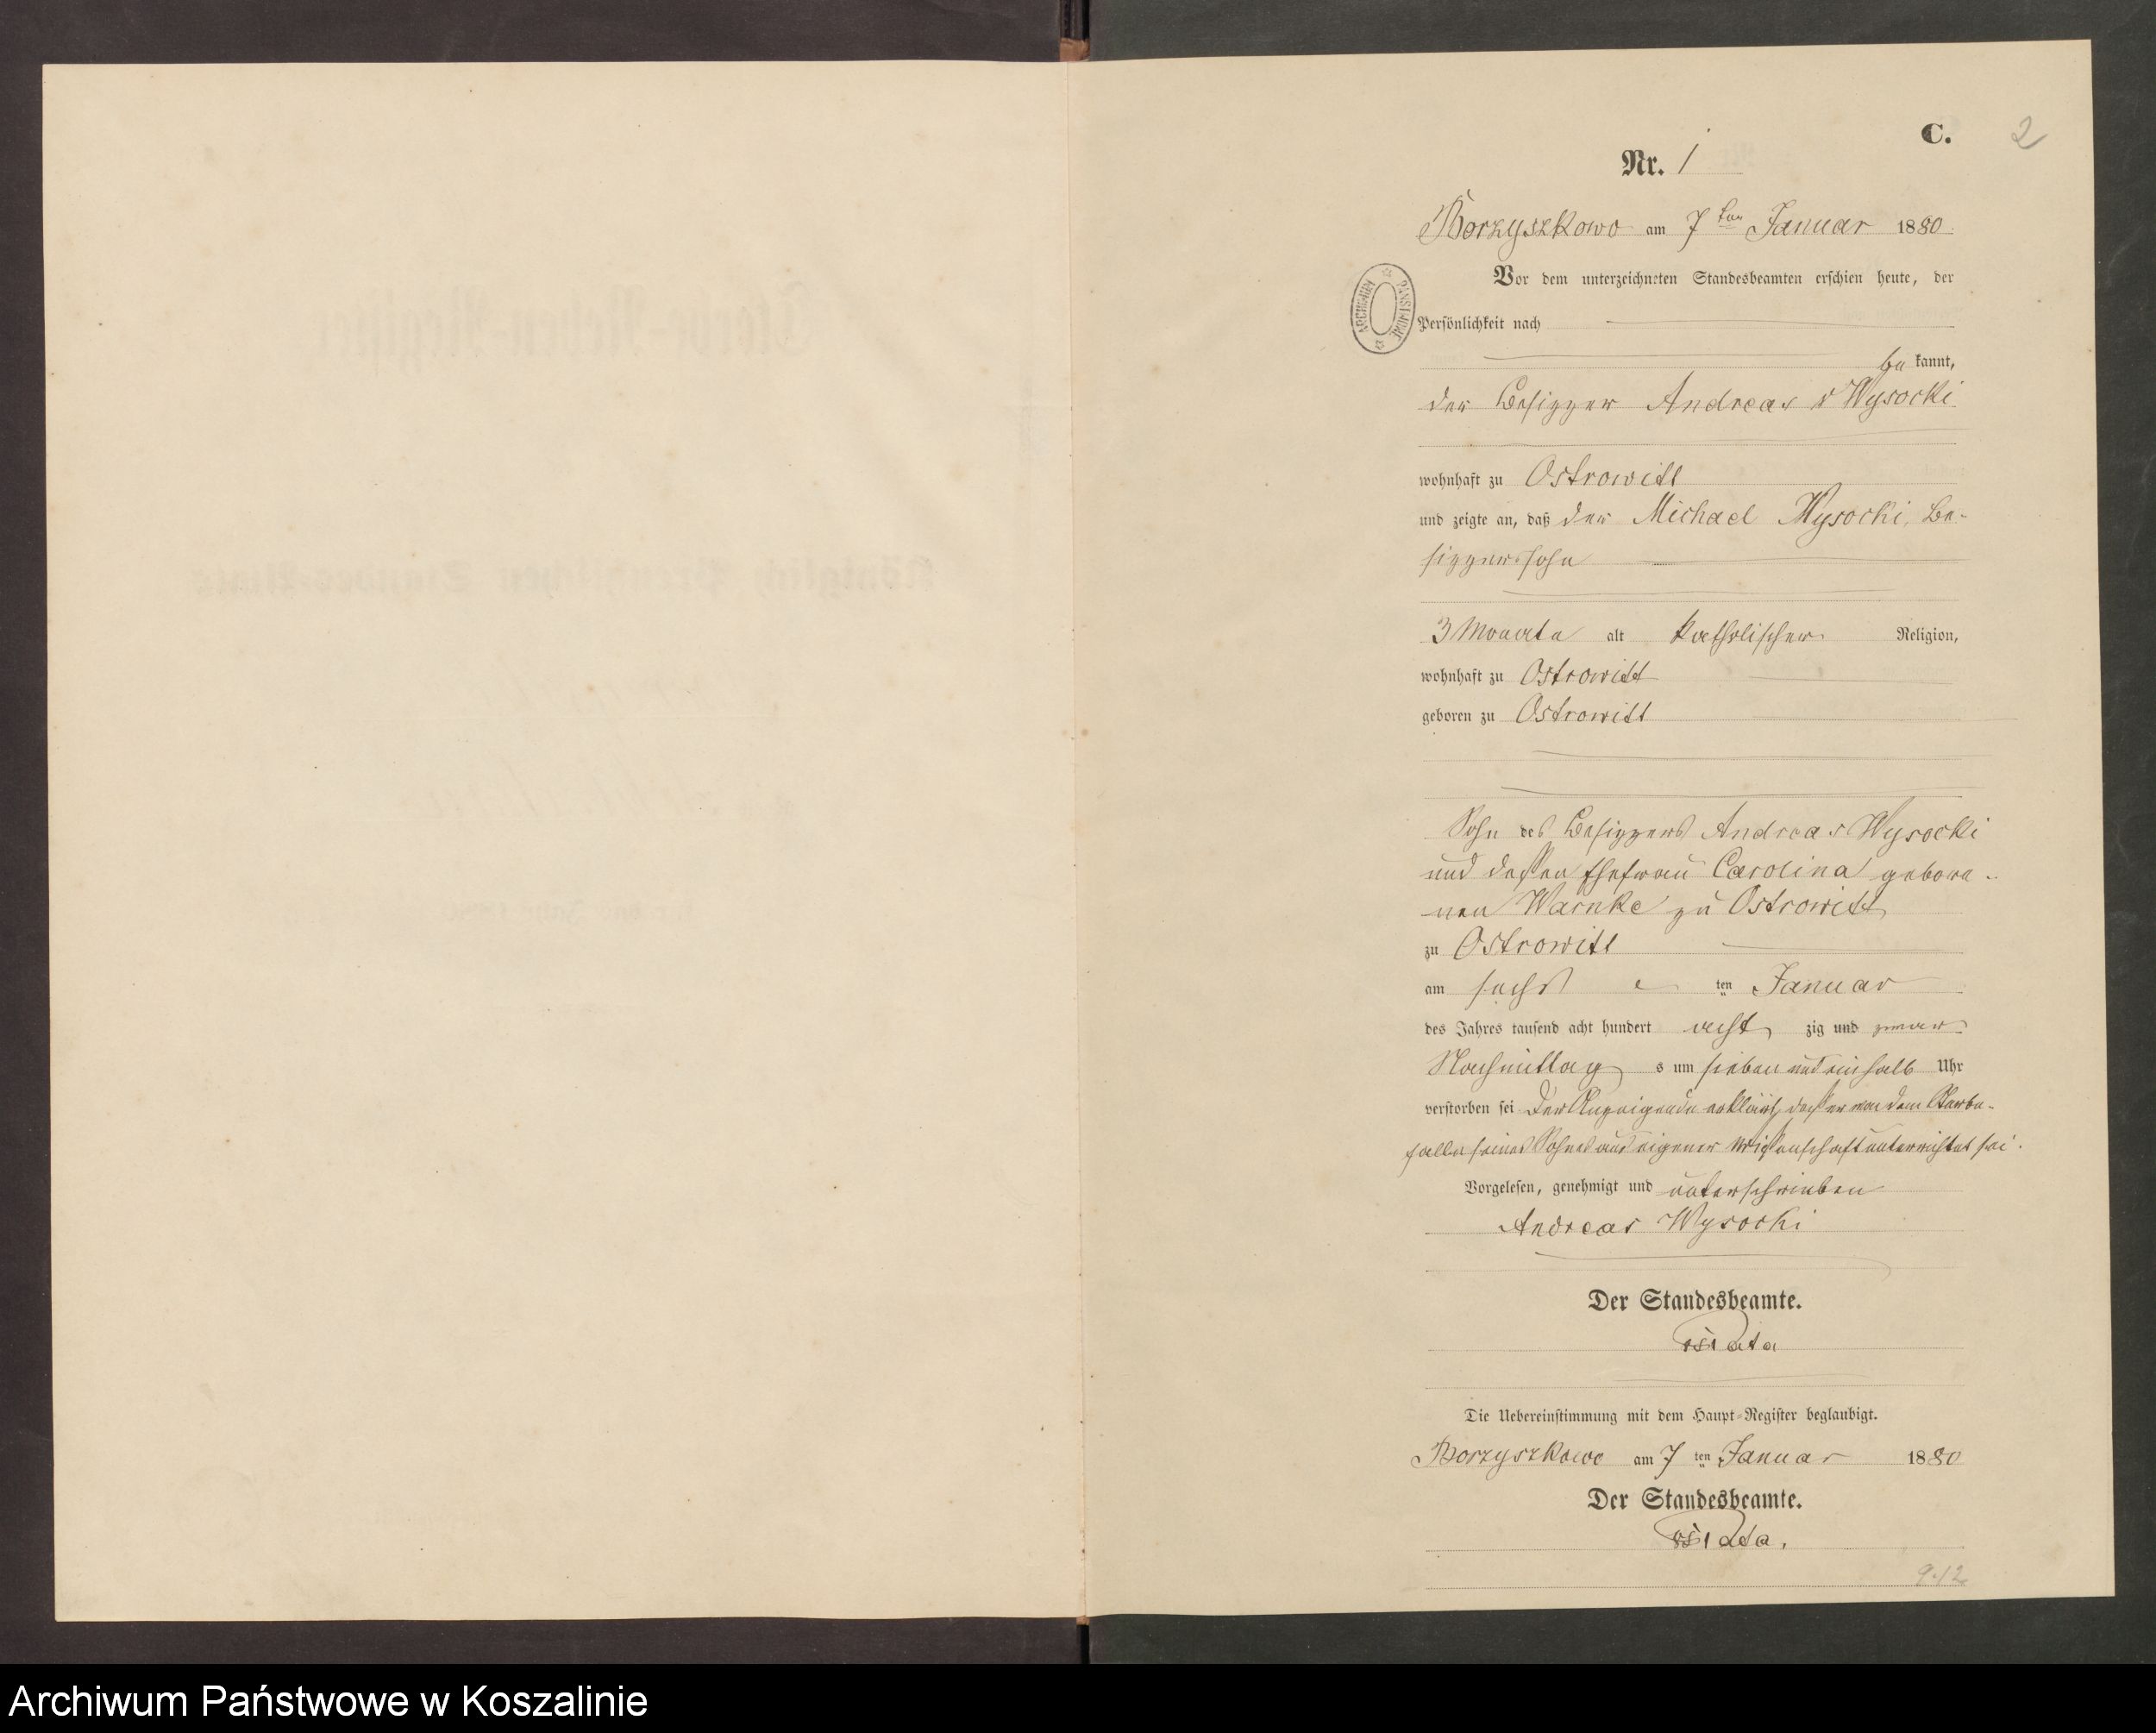 C.
2
Nr. 1
Borzyszkowo am 7ten Januar 1880
Vor dem unterzeichneten Standesbeamten erschien heute, der
Persönlichkeit nach
ARCHIWUM PAŃSTWOWE
be kannt,
der Besitzer Andreas Wysocki
wohnhaft zu Ostrowitt
und zeigte an, daß der Michael Wysocki, Be-
sitzerssohn
3 Monate alt katholischer Religion,
wohnhaft zu Ostrowitt
geboren zu Ostrowitt
Sohn des Besitzers Andreas Wysocki
und dessen Ehefrau Carolina gebore-
nen Warnke zu Ostrowitt
zu Ostrowitt
am sechs e ten Januar
des Jahres tausend acht hundert acht zig und zwar
Nachmittag s um sieben und einhalb Uhr
verstorben sei Der Anzeigende erklärt, dass er von dem Sterbe-
falle seines Sohnes aus eigener Wissenschaft unterrichtet sei.
Vorgelesen, genehmigt und unterschrieben
Andreas Wysocki
Der Standesbeamte.
Die Uebereinstimmung mit dem Haupt-Register beglaubigt.
Borzyszkowo am 7 ten Januar 1880
Der Standesbeamte.
9.12
Archiwum Państwowe w Koszalinie